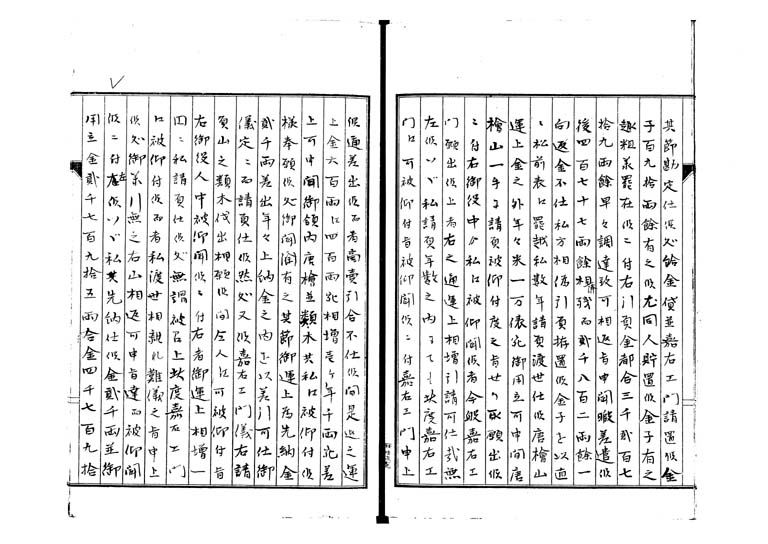 其節勘定仕候処給金貸並嘉右エ門請置候金
子百九拾両余有之候尤同人貯置候金子有之
趣粗承罷在候ニ付右引負金都合三千弐百七
拾九両余早々調達致可相返旨申聞暇差遣候
後四百七十七両余相済残而弐千八百二両余一
向返金不仕私方相傷引負拵置候金子を以直
ニ松前表江罷越私数年請負渡世仕候唐檜山
運上金之外年々米一万俵宛御用立可申間唐
檜山一手ニ請負被仰付度旨せり取願出候
ニ付右御役中ゟ私江被仰聞候者今般嘉右エ
門願出候上者右之通運上相増引請可仕哉無
左候ハヾ私請負年数之内ニても此度嘉右エ
門江可被仰付旨被仰聞候ニ付嘉右エ門申上
候通差出候而者商売引合不仕候間是迄之運
上金六百両江四百両宛相増壱ケ年千両宛差
上可申間御領内唐檜並類木共私江被仰付候
様奉願候処御聞届有之其節御運上為先納金
弐千両差出年々上納金之内を以差引可仕御
儀定ニ而請負仕候然処又候嘉右エ門儀右請
負山之類木伐出相願候間全人江可被仰付旨
右御役人中被仰聞候ニ付右者御運上相増一
円ニ私請負仕候処無謂被召上此度嘉右エ門
江被仰付候而者私渡世相離れ難儀之旨申上
候処御承引無之右山相返可申旨達而被仰聞
候ニ付左候ハヾ私共先納仕候金弐千両並御
用立金弐千七百九拾五両合金四千七百九拾